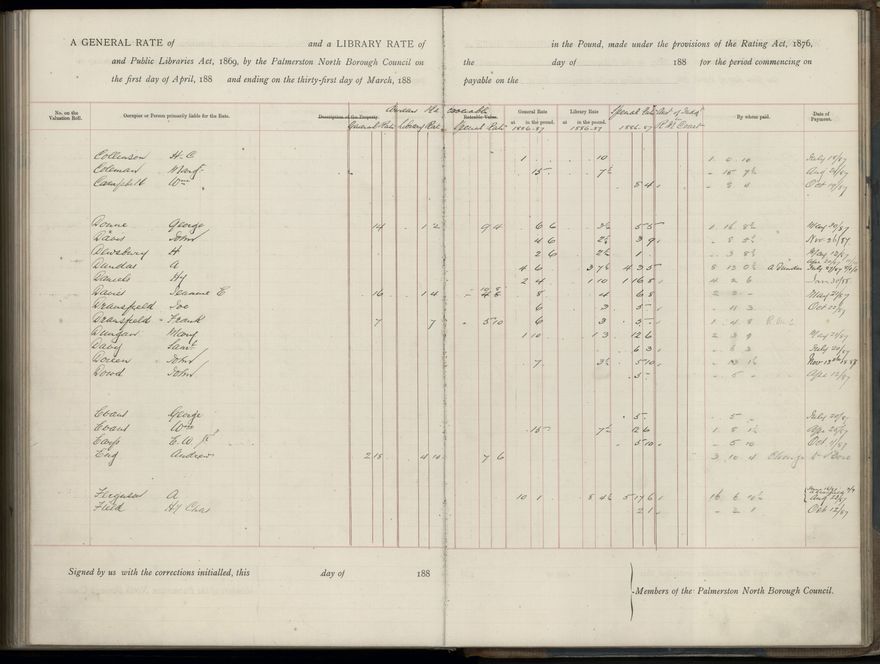 A GENERAL RATE of and a LIBRARY RATE of in the Pound, made under the provisions of the Rating Act, 1876,
and Public Libraries Act, 1869, by the Palmerston North Borough Council on the day of 188 for the period commencing on
the first day of April, 188 and ending on the thirty-first day of March, 188 payable on the
No. on the Valuation Roll. Occupier or Person primarily liable for the Rate. Description of the Property. Rateable Value. General Rate at in the pound. Library Rate at in the pound. By whom paid. Date of Payment.
General Rate Library Rate Special Rate 1886-87 1886-87 Special Rate 1886-87 R. M. Court
Collinson H. C. 1 10 1 0 10 July 19/87
Coleman 15 7½ 15 7½ Aug 24/87
Campbell Wm 8 4 8 4 Oct 19/87
Donne George 14 1 2 9 4 6 6 3½ 5 5
Davis John 4 6 2½ 3 9 Nov 26/87
Dewsbury H 2 6 2½ 1 3 8½
Dundas A 4 6 3 7½ 4 3 5 8 13 0½ A Dundas
Daniels Hy 2 4 1 10 1 16 8 4 2 6
Davis Jeannie E 16 1 4 8 4 6 8
Dransfield Joe 6 3 5 11 3 Oct 22/87
Dransfield Frank 7 7 5 10 6 3 5 1 4 8
Dungan 1 10 1 3 12 6 2 3 9 May 24/87
Davy Saml 6 3 6 3 July 20/87
Doreen John 7 3½ 5 10 13 1½
Dowd John 5 5 Apr 12/87
Evans George 5 5 July 20/87
Evans Wm 15 7½ 12 6 1 8 1½ Apr 23/87
Easp E. W. 5 10 5 10 Oct 1/87
Eng Andrew 2 18 4 10 7 6 3 10 4
Ferguson A 10 1 8 4½ 5 17 6 16 6 10½ Aug 22/87
Field Hy Chas 2 1 2 1 Oct 12/87
Signed by us with the corrections initialled, this day of 188
Members of the Palmerston North Borough Council.